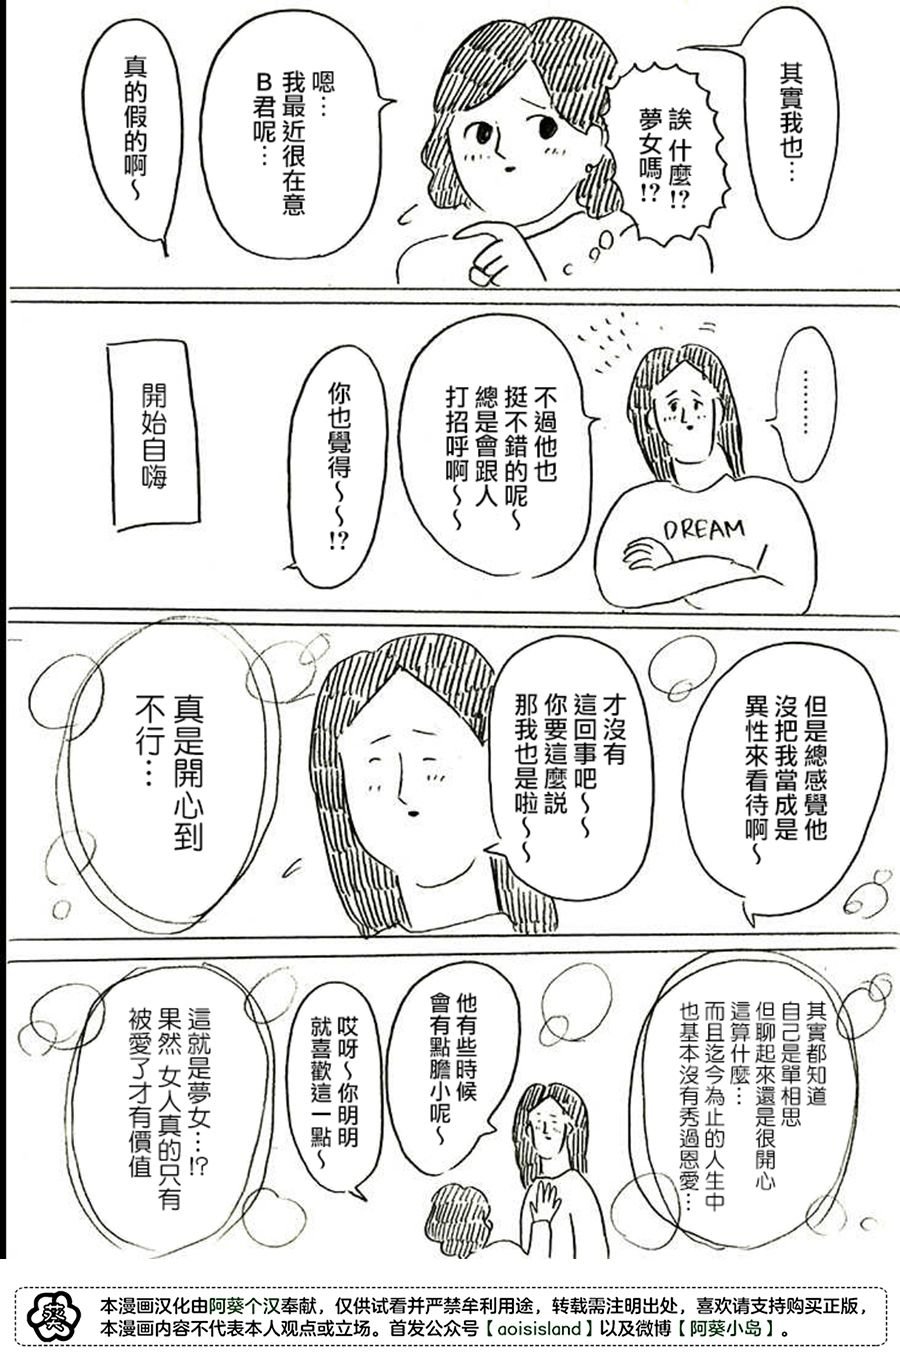 其實我也…
誒 什麼!?
夢女嗎!?
嗯…
我最近很在意
B君呢…
真的假的啊～
………
不過他也
挺不錯的呢～
總是會跟人
打招呼啊～～
DREAM
你也覺得～～!?
開始自嗨
但是總感覺他
沒把我當成是
異性來看待啊～
才沒有
這回事吧～
你要這麼說
那我也是啦～
真是開心到
不行…
其實都知道
自己是單相思
但聊起來還是很開心
這算什麼…
而且迄今為止的人生中
也基本沒有秀過恩愛…
他有些時候
會有點膽小呢～
哎呀～你明明
就喜歡這一點～
這就是夢女…!?
果然 女人真的只有
被愛了才有價值
葵
本漫画汉化由阿葵个汉奉献，仅供试看并严禁牟利用途，转载需注明出处，喜欢请支持购买正版，
本漫画内容不代表本人观点或立场。首发公众号【aoisisland】以及微博【阿葵小岛】。